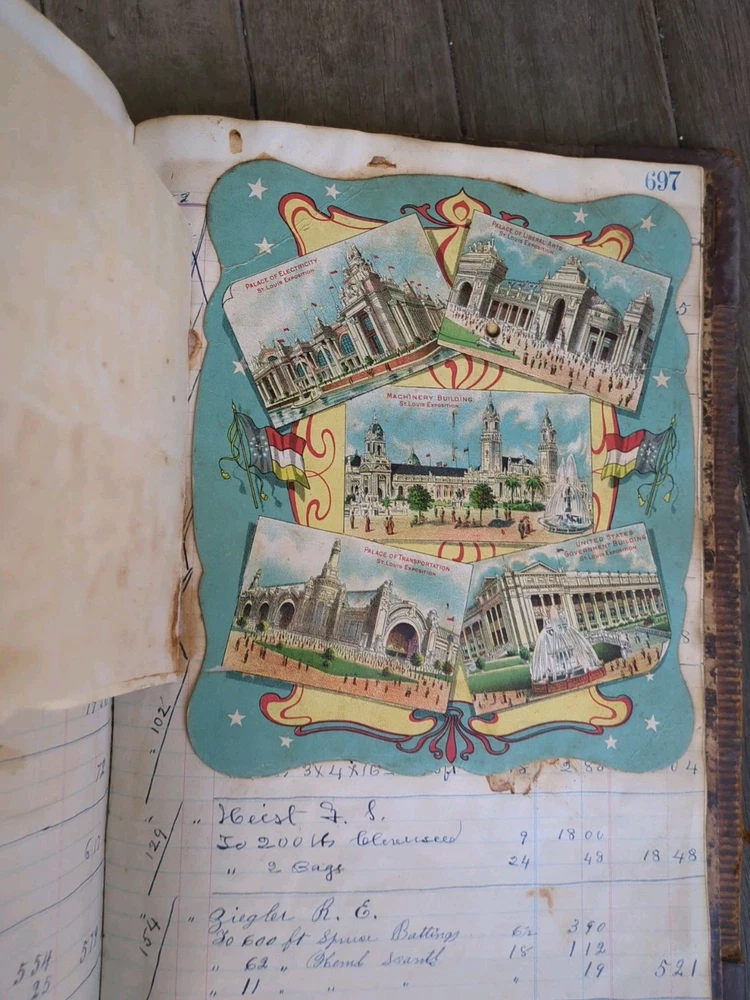 697
PALACE OF ELECTRICITY
ST. LOUIS EXPOSITION
PALACE OF LIBERAL ARTS
ST. LOUIS EXPOSITION
MACHINERY BUILDING
ST. LOUIS EXPOSITION
PALACE OF TRANSPORTATION
ST. LOUIS EXPOSITION
UNITED STATES
GOVERNMENT BUILDING
ST. LOUIS EXPOSITION
102
3x4x16
04
129
" Heist F. S.
To 200 lbs 9 18 00
" 2 Bags 24 48 18 48
154
" Ziegler R. E.
To 600 ft Spruce Battings 390
" 62 " 18 1 12
" 11 " " " " 19 521
554
25